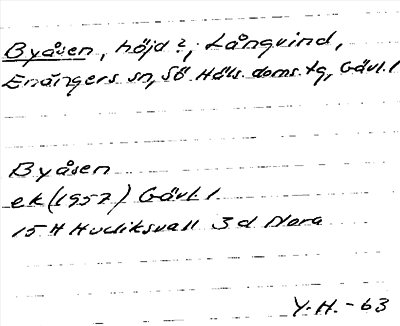 Byåsen, höjd?, Långvind,
Enångers sn, SÖ Häls. doms. tg, Gävl. l
Byåsen
ek (1957) Gävl. l
15 H Hudiksvall 3 d Nora
Y. H. - 63